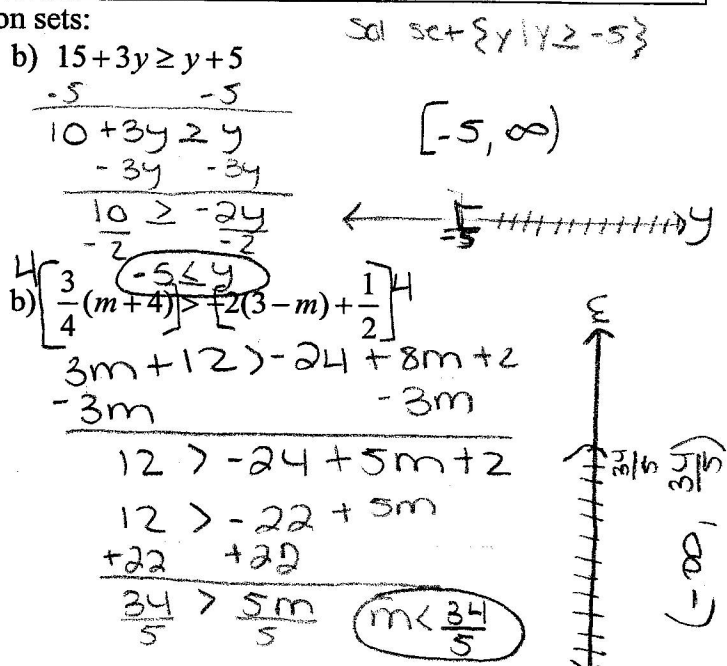 on sets:
b) 15+3y ≥ y+5
Sol set {y|y ≥ -5}
-5 -5
10 +3y ≥ y
- 3y -3y
10 ≥ -2y
-2 -2
-5 ≤ y
[-5, ∞)
-5 y
b) 4[3/4(m+4)] > [-2(3-m)+1/2]4
3m+12 > -24 + 8m +2
-3m -3m
12 > -24 + 5m + 2
12 > -22 + 5m
+22 +22
34/5 > 5m/5
m < 34/5
m
34/5
(-∞, 34/5)